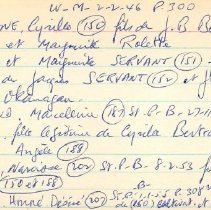 W-M-2-2-46 P.300
NE, Cyrille (152) fils de J.B. B
et Marguerite Rolette
et Marguerite SERVANT (151)
de Jacques SERVANT (152) et
Okanagan.
Marceline (187) St.P.B-27-11
fille légitime de Cyrille Bertra
Angèle (188)
Narcisse (202) St.P-B-8-2-53 fils
150 et 188
Honoré Désiré (207) St.P.-1-1-55 P.308
B-
de (150) cultivat. et